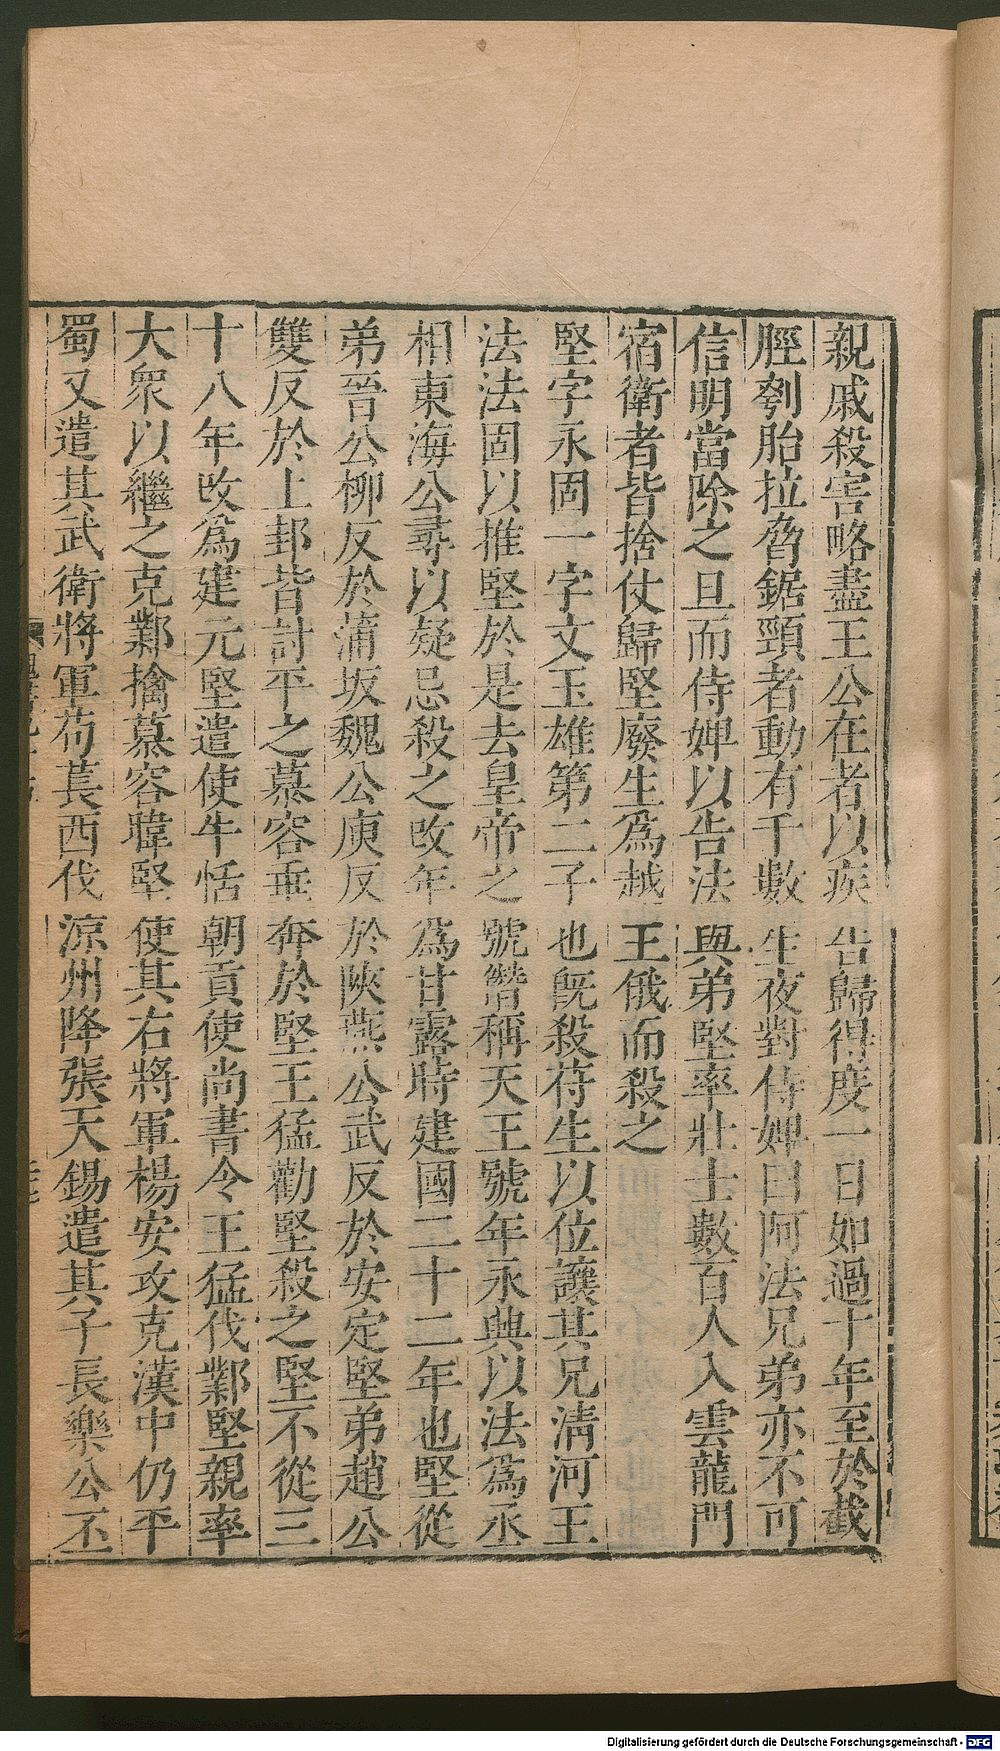 親戚殺害略盡王公在者以疾告歸得度一日如過十年至於截
脛刳胎拉脅鋸頸者動有千數生夜對侍婢曰阿法兄弟亦不可
信明當除之旦而侍婢以告法與弟堅率壯士數百人入雲龍門
宿衛者皆捨仗歸堅廢生爲越王俄而殺之
堅字永固一字文玉雄第二子也旣殺苻生以位讓其兄淸河王
法法固以推堅於是去皇帝之號僭稱天王號年永興以法爲丞
相東海公尋以疑忌殺之改年爲甘露時建國二十二年也堅從
弟晉公柳反於蒲坂魏公庾反於陝燕公武反於安定堅弟趙公
雙反於上邽皆討平之慕容垂奔於堅王猛勸堅殺之堅不從三
十八年改爲建元堅遣使牛恬朝貢使尚書令王猛伐鄴堅親率
大衆以繼之克鄴擒慕容暐堅使其右將軍楊安攻克漢中仍平
蜀又遣其武衛將軍苟萇西伐涼州降張天錫遣其子長樂公丕
Digitalisierung gefördert durch die Deutsche Forschungsgemeinschaft - DFG